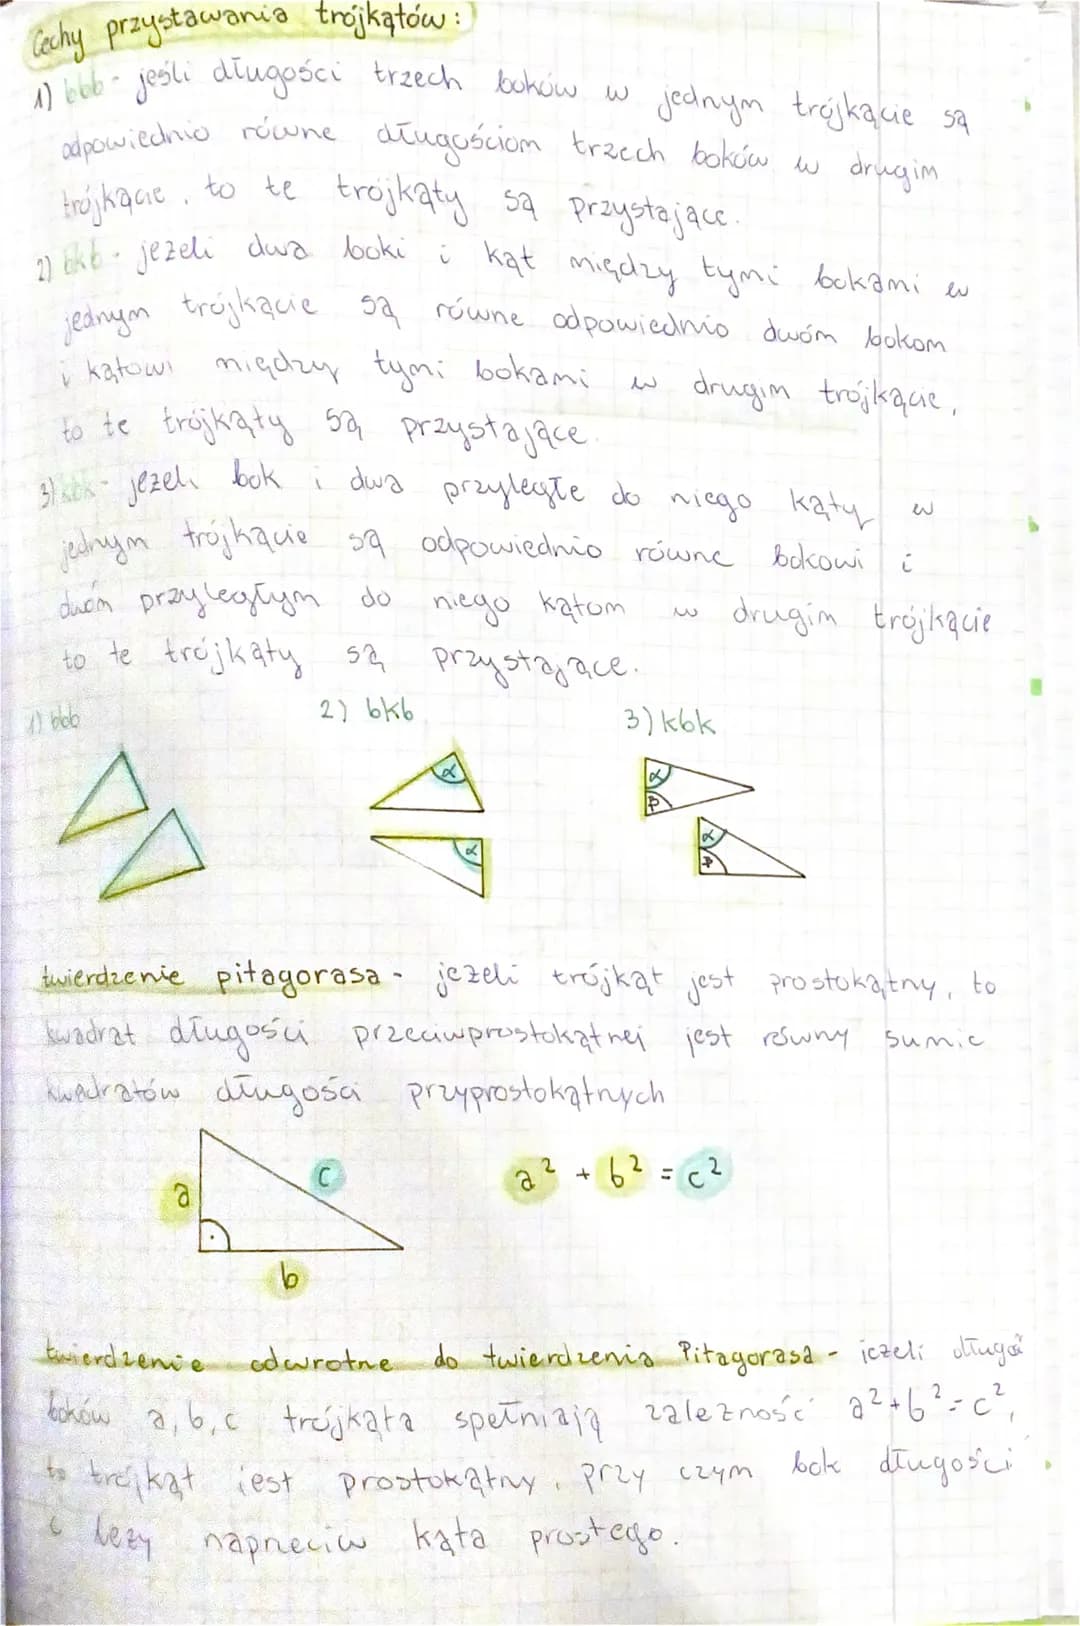 Cechy przystawania trójkątów:
1) bbb - jeśli długości trzech boków w jednym trójkącie są
odpowiednio równe długościom trzech boków w drugim
trójkącie, to te trójkąty są przystające.
2) bkb - jeżeli dwa boki i kąt między tymi bokami w
jednym trójkącie są równe odpowiednio dwóm bokom
i kątowi między tymi bokami w drugim trójkącie,
to te trójkąty są przystające.
3) kbk - jeżeli bok i dwa przyległe do niego kąty w
jednym trójkącie są odpowiednio równe bokowi i
dwóm przyległym do niego kątom w drugim trójkącie
to te trójkąty są przystające.
1) bbb 2) bkb 3) kbk
α α
β
α α
β
twierdzenie pitagorasa - jeżeli trójkąt jest prostokątny, to
kwadrat długości przeciwprostokątnej jest równy sumie
kwadratów długości przyprostokątnych
a c a² + b² = c²
b
twierdzenie odwrotne do twierdzenia Pitagorasa - jeżeli długoś
boków a, b, c trójkąta spełniają zależność a² + b² = c²,
to trójkąt jest prostokątny, przy czym bok długości
c leży naprzeciw kąta prostego.